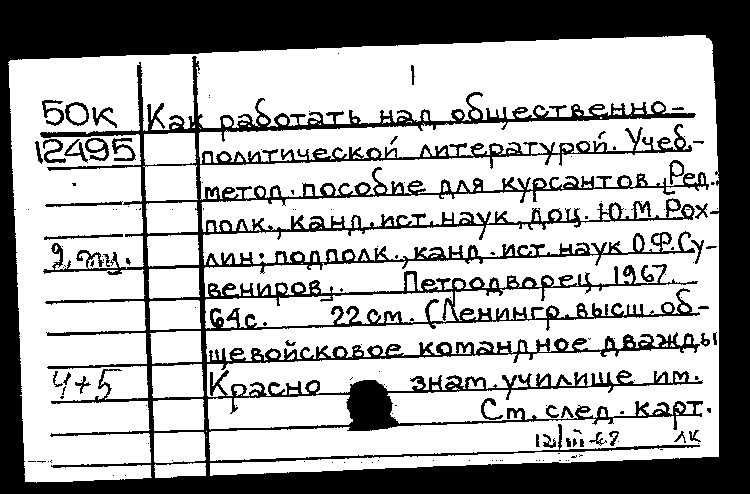 1
50к Как работать над общественно-
12495 политической литературой. Учеб.-
метод. пособие для курсантов. [Ред.:
полк., канд. ист. наук, доц. Ю.М. Рох-
лин; подполк., канд. ист. наук О.Ф. Су-
вениров]. Петродворец, 1967.
64с. 22см. (Ленингр. высш. об-
щевойсковое командное дважды
4+5 Красно знам. училище им.
См. след. карт.
12/III-68 ЛК